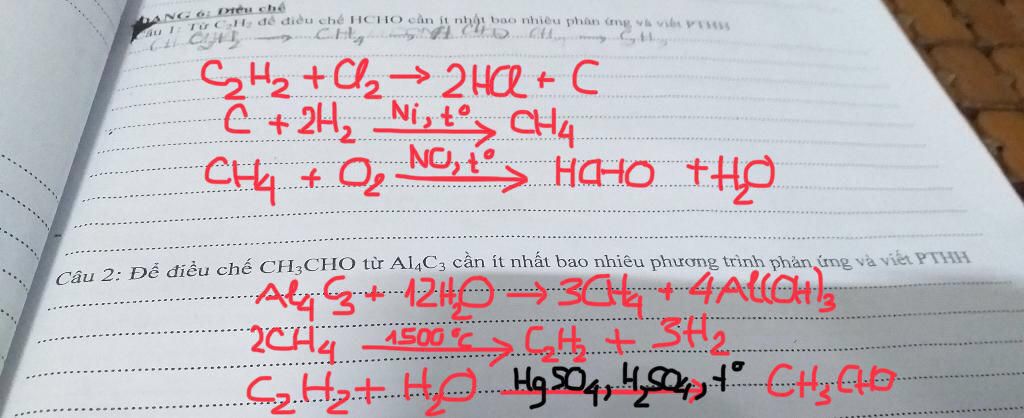 DẠNG 6: Điều chế
Câu 1: Từ C₂H₂ để điều chế HCHO cần ít nhất bao nhiêu phản ứng và viết PTHH
C₂H₂ + Cl₂ → 2HCl + C
C + 2H₂ —Ni, t°→ CH₄
CH₄ + O₂ —NO, t°→ HCHO + H₂O
Câu 2: Để điều chế CH₃CHO từ Al₄C₃ cần ít nhất bao nhiêu phương trình phản ứng và viết PTHH
Al₄C₃ + 12H₂O → 3CH₄ + 4Al(OH)₃
2CH₄ —1500°C→ C₂H₂ + 3H₂
C₂H₂ + H₂O —HgSO₄, H₂SO₄, t°→ CH₃CHO